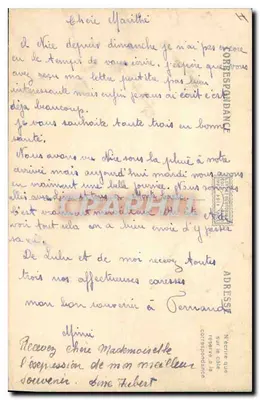 Chère Marithé
A Nice depuis dimanche je n'ai pas encore
eu le temps de vous écrire. J'espère que vous
avez reçu ma lettre petite pas bien
intéressante mais enfin je vous ai écrit c'est
déjà beaucoup.
Je vous souhaite toute trois en bonne
santé.
Nous avons vu Nice sous la pluie à notre
arrivée mais aujourd'hui mardi nous avons
eu vraiment une belle journée. Nous sommes
C'est
voir tout cela on a bien envie d'y passer
sa vie.
De Lulu et de moi recevez toutes
trois nos affectueuses caresses
mon bon souvenir à Fernand
Mimi
Recevez Chère Mademoiselle
l'expression de mon meilleur
souvenir.
CORRESPONDANCE
ADRESSE
N'écrire que
sur le côté
réservé à la
correspondance
CPARAMA